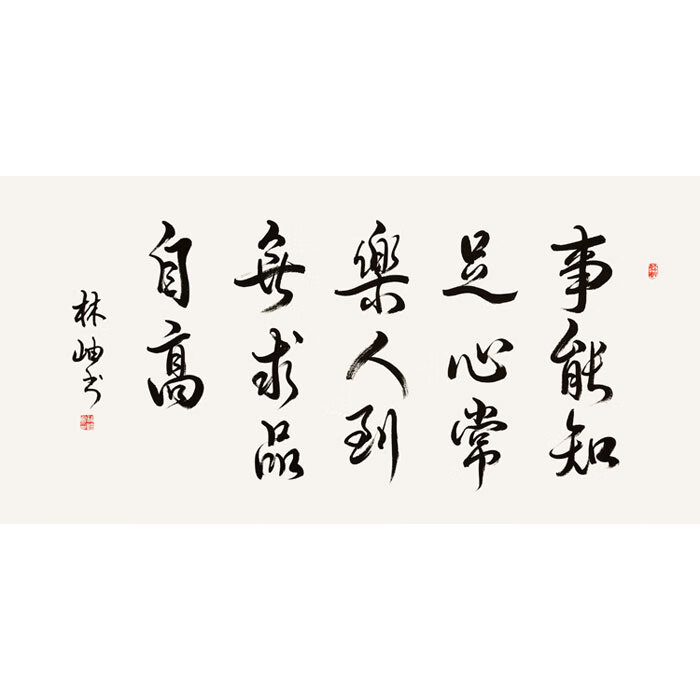 事能知
足心常
樂人到
無求品
自高
林岫书